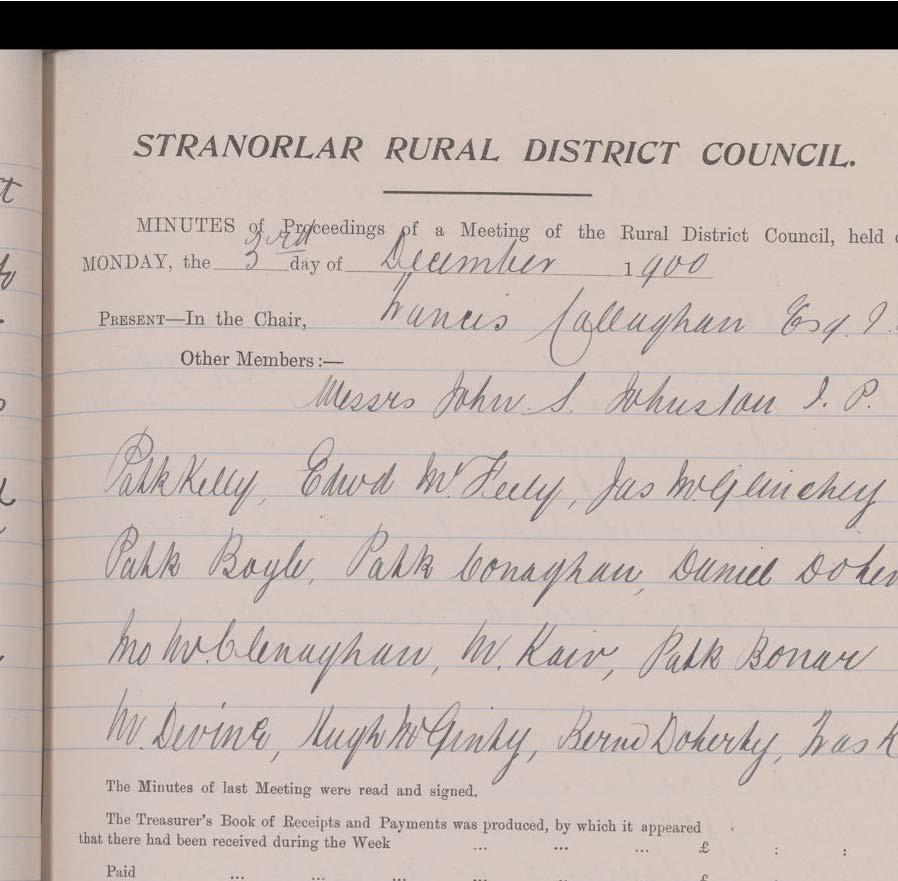 STRANORLAR RURAL DISTRICT COUNCIL.
MINUTES of Proceedings of a Meeting of the Rural District Council, held
MONDAY, the 3rd day of December 1900
PRESENT—In the Chair, Francis Callaghan Esq. J.
Other Members:—
Messrs John S. Johnston J. P.
Patk Kelly, Edwd McFeely, Jas McGlinchey
Patk Boyle, Patk Conaghan, Daniel Doher
Jno McClenaghan, M. Kair, Patk Bonar
M. Devine, Hugh McGinty, Bernd Doherty, Fras K
The Minutes of last Meeting were read and signed.
The Treasurer's Book of Receipts and Payments was produced, by which it appeared
that there had been received during the Week ... ... ... £ : :
Paid ... ... ... ... ... £